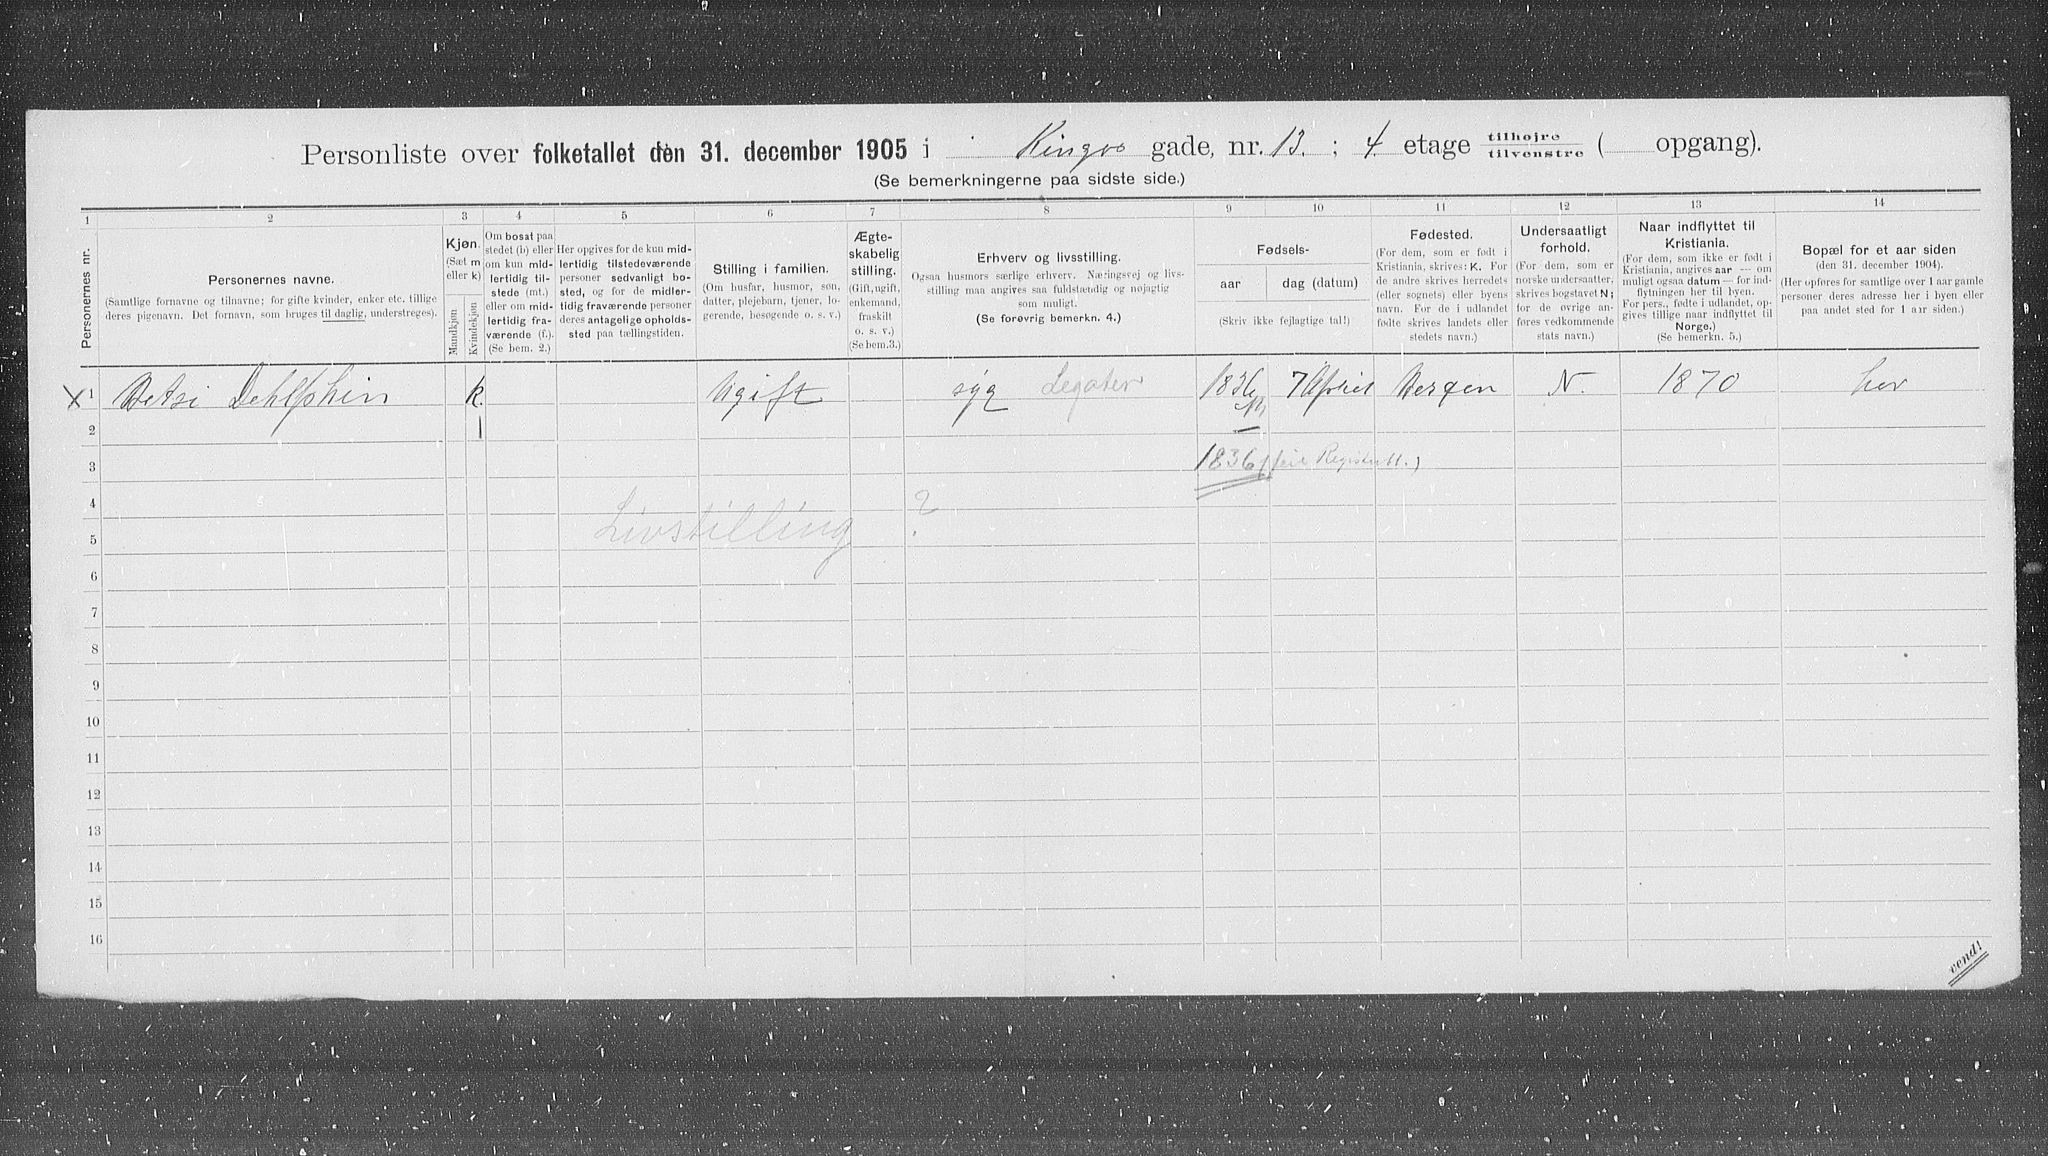 Personliste over folketallet den 31. december 1905 i Kingos gade, nr. 13. ; 4. etage tilhøjre/tilvenstre ( opgang).
(Se bemerkningerne paa sidste side.)
1 2 3 4 5 6 7 8 9 10 11 12 13 14
Personernes nr.
Personernes navne.
(Samtlige fornavne og tilnavne; for gifte kvinder, enker etc. tillige
deres pigenavn. Det fornavn, som bruges til daglig, understreges).
Kjøn.
(Sæt m
eller k)
Mandkjøn
Kvindekjøn
Om bosat paa
stedet (b) eller
om kun mid-
lertidig til-
stede (mt.)
eller om mid-
lertidig fra-
værende (f.).
(Se bem. 2.)
Her opgives for de kun mid-
lertidig tilstedeværende
personer sedvanligt bo-
sted, og for de midler-
tidig fraværende personer
deres antagelige opholds-
sted paa tællingstiden.
Stilling i familien.
(Om husfar, husmor, søn,
datter, plejebarn, tjener, lo-
gerende, besøgende o. s. v.)
Ægte-
skabelig
stilling.
(Gift, ugift,
enkemand,
fraskilt
o. s. v.)
(Se bem.3.)
Erhverv og livsstilling.
Ogsaa husmors særlige erhverv. Næringsvej og livs-
stilling maa angives saa fuldstændig og nøjagtig
som muligt.
(Se forøvrig bemerkn. 4.)
Fødsels-
aar dag (datum)
(Skriv ikke fejlagtige tal!)
Fødested.
(For dem, som er født i
Kristiania, skrives: K. For
de andre skrives herredets
(eller sognets) eller byens
navn. For de i udlandet
fødte skrives landets eller
stedets navn.)
Undersaatligt
forhold.
(For dem, som er
norske undersaatter,
skrives bogstavet N;
for de øvrige an-
føres vedkommende
stats navn.)
Naar indflyttet til
Kristiania.
(For dem, som ikke er født i
Kristiania, angives aar — om
muligt ogsaa datum — for ind-
flytningen her til byen.
For pers., fødte i udlandet, op-
gives tillige naar indflyttet til
Norge.)
(Se bemerkn. 5.)
Bopæl for et aar siden
(den 31. december 1904).
(Her opføres for samtlige over 1 aar gamle
personer deres adresse her i byen eller
paa andet sted for 1 aar siden.)
X 1 Betsi Dehlphin k. Ugift syg Legater 1836 7 April Bergen N. 1870 her
2
3 1836 Registull.)
4
5 Livstilling ?
6
7
8
9
10
11
12
13
14
15
16
vend!